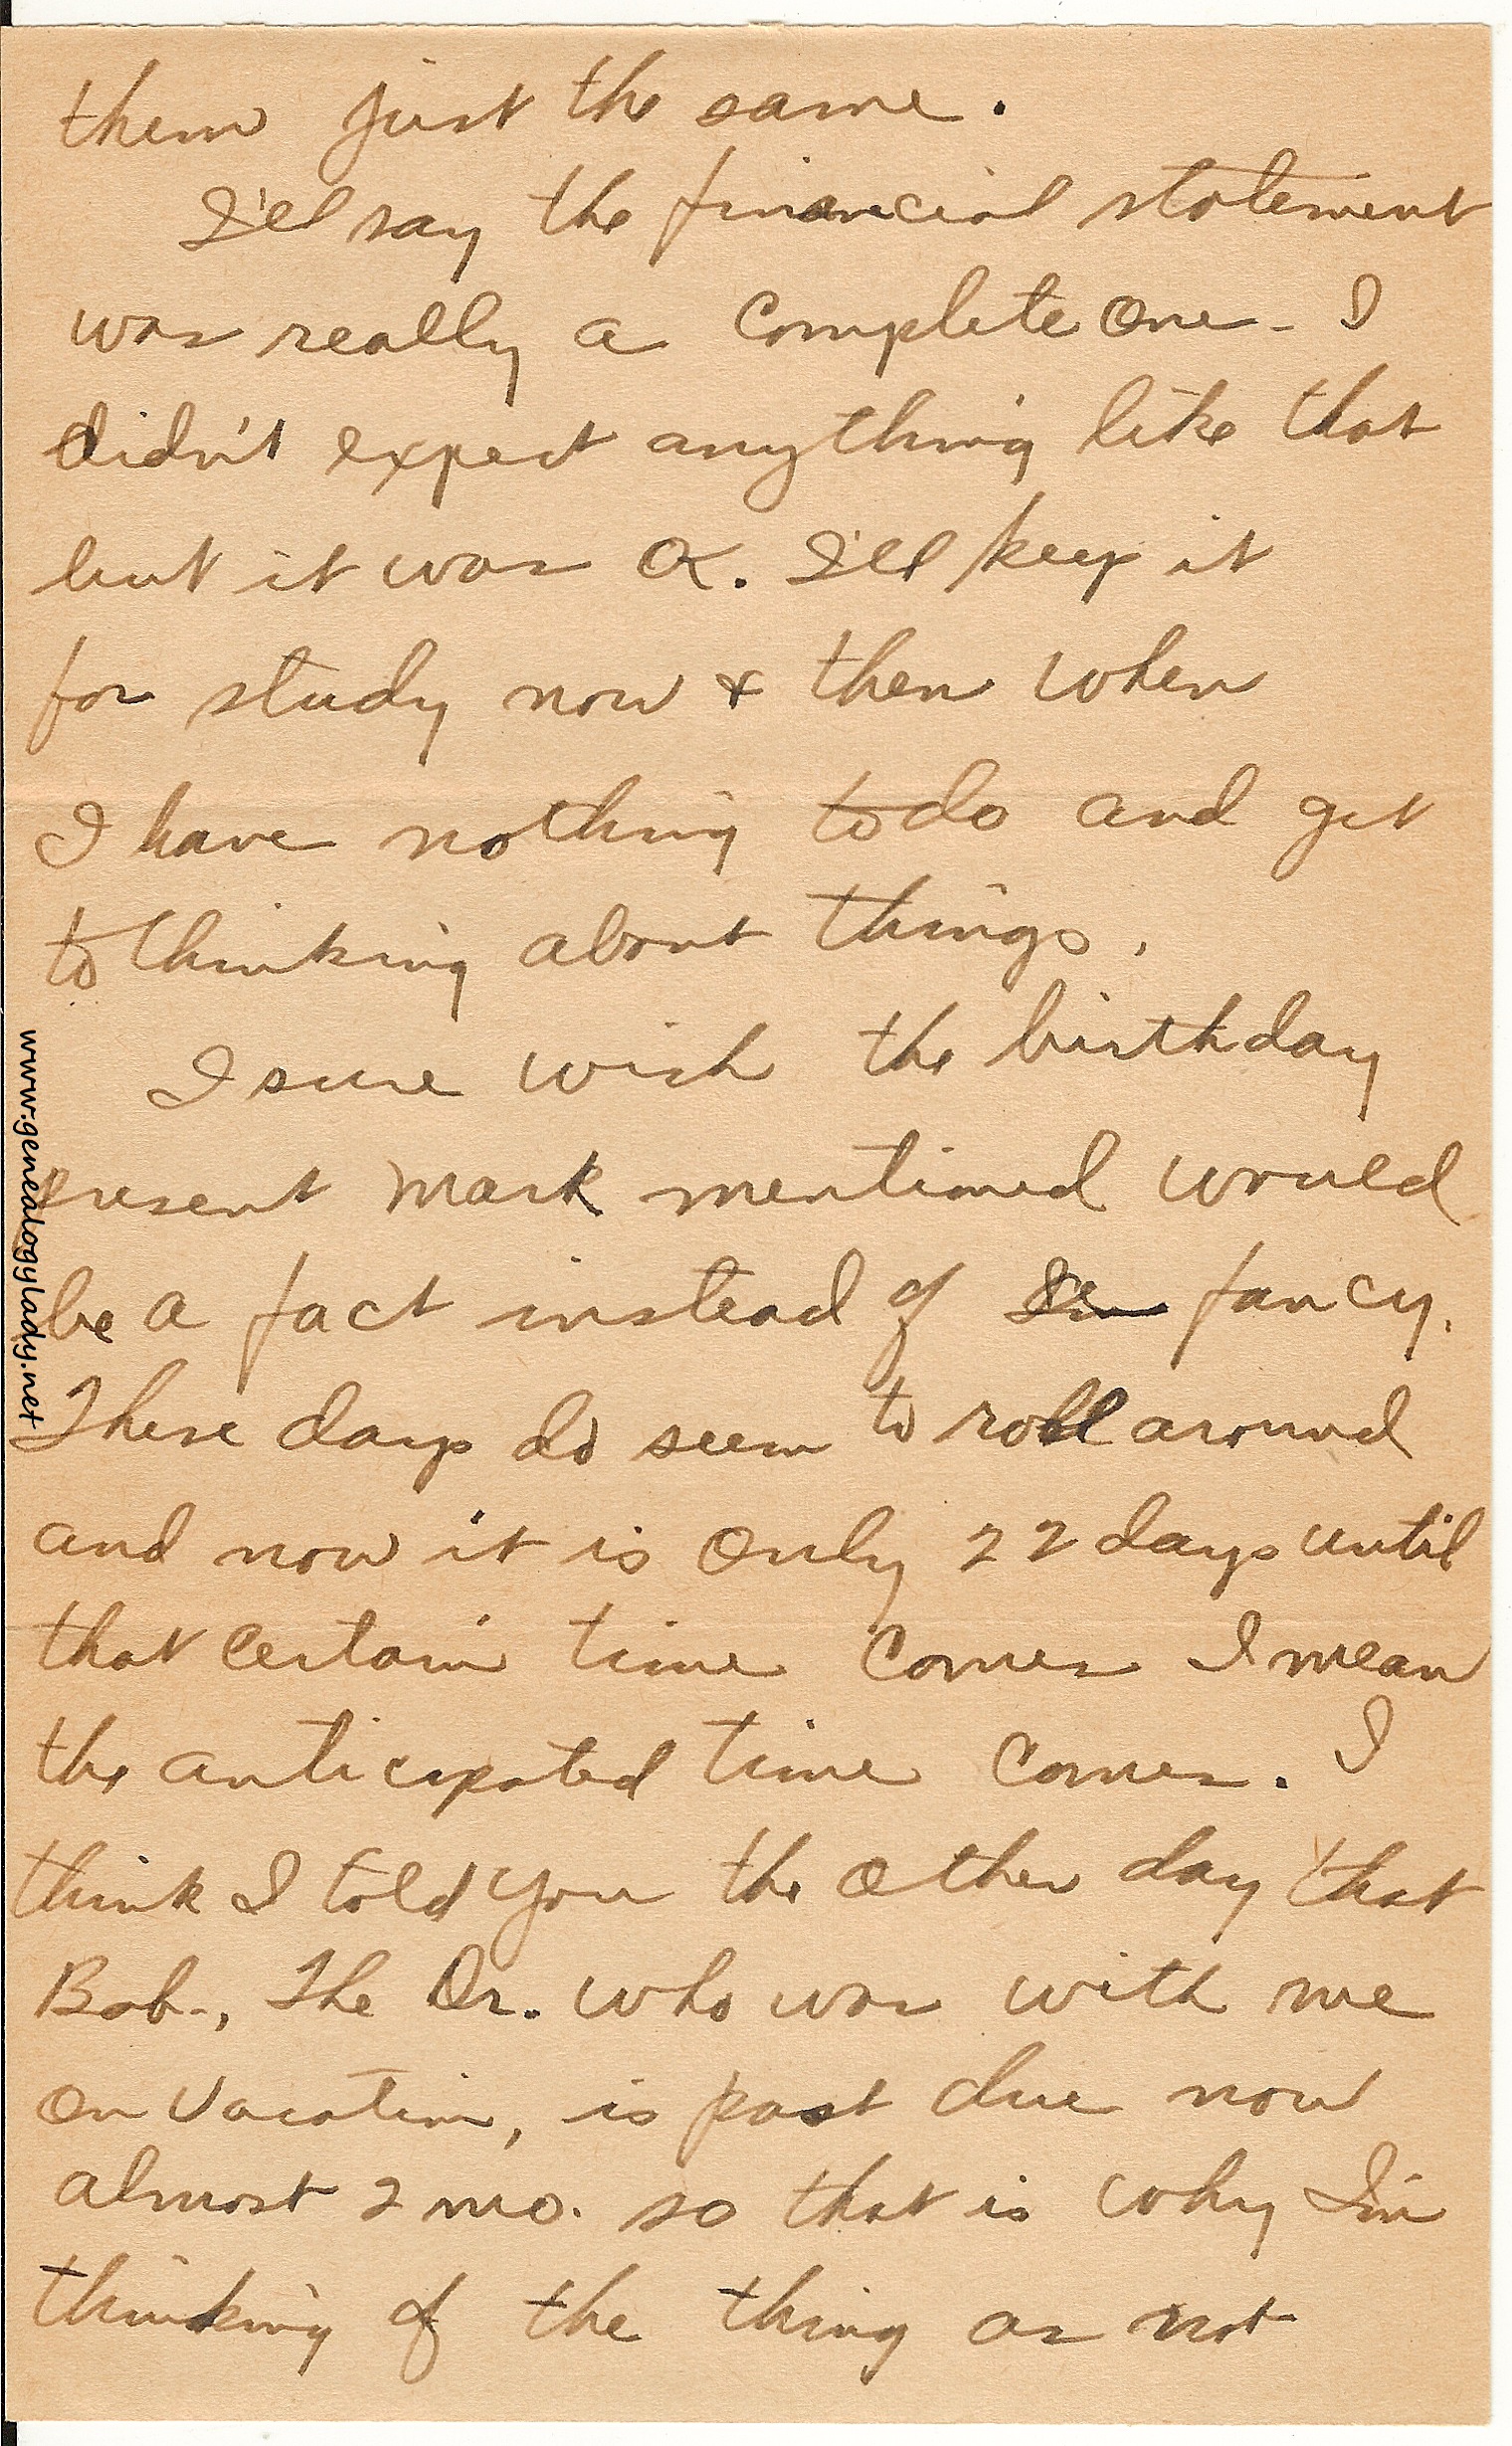 them just the same.
I'll say the financial statement
was really a complete one - I
didn't expect anything like that
but it was OK. I'll keep it
for study now & then when
I have nothing to do and get
to thinking about things.
I sure wish the birthday
present Mark mentioned would
be a fact instead of fancy.
These days do seem to roll around
and now it is only 22 days until
that certain time comes I mean
the anticipated time comes. I
think I told you the other day that
Bob, The Dr. who was with me
on vacation, is past due now
almost 2 mo. so that is why I'm
thinking of the thing as not
www.genealogylady.net